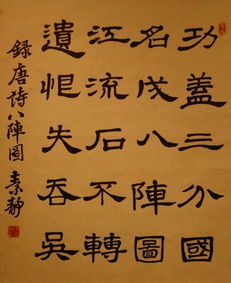 功蓋三分國
名成八陣圖
江流石不轉
遺恨失吞吳
録唐詩八陣圖 素静